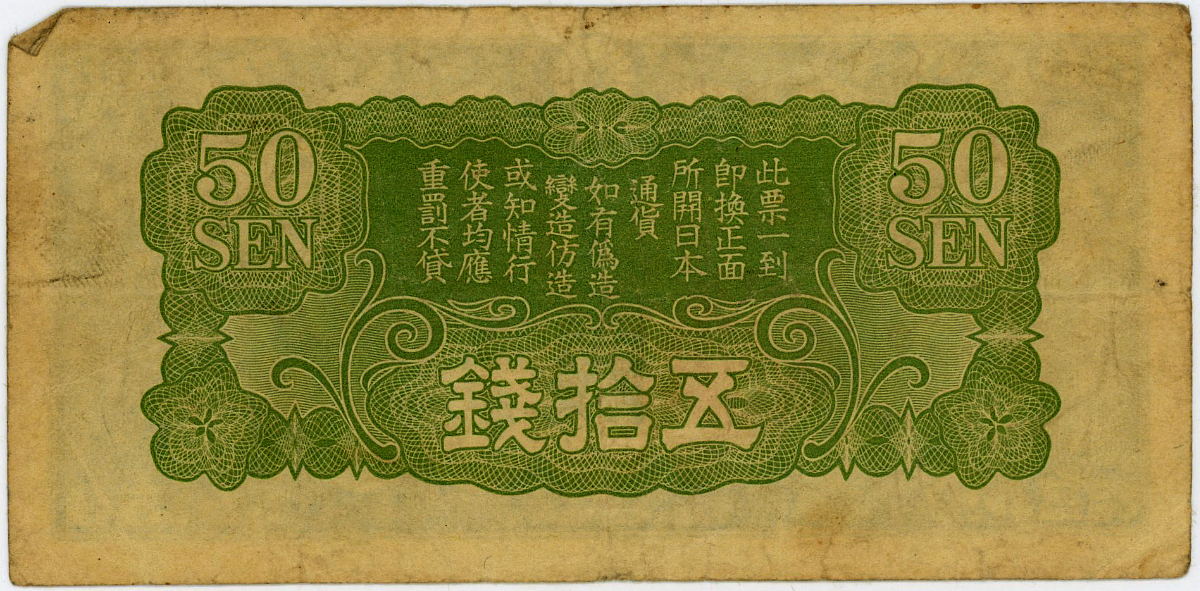 50
SEN
50
SEN
此票一到
即換正面
所開日本
通貨
如有僞造
變造仿造
或知情行
使者均應
重罰不貸
五拾錢